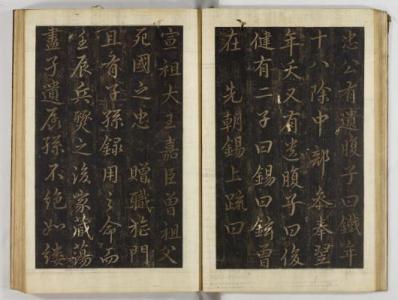 忠公有遺腹子曰鐵年
十八除中部參奉翌
年夭又有遺腹子曰後
健有二子曰錫曰鉉曾
在 先朝錫上疏曰
宣祖大王嘉臣曾祖父
死國之忠 贈職旌門
且有子孫錄用之命而
壬辰兵燹之後家藏蕩
盡孑遺孱孫不絶如縷